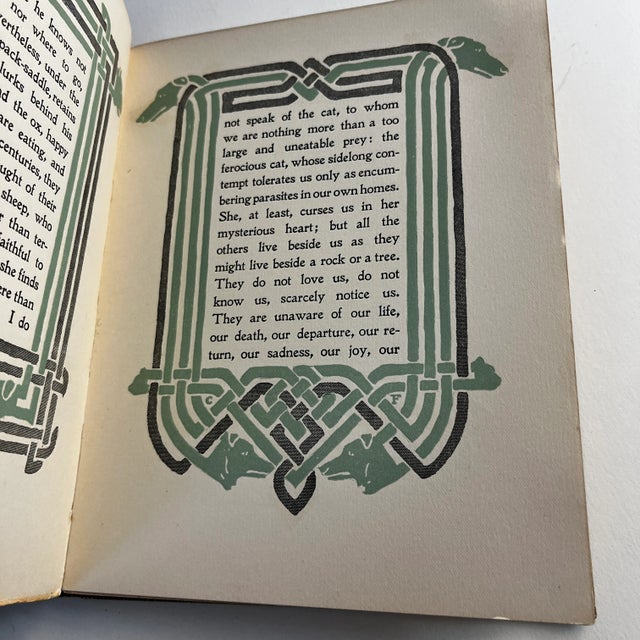 he knows not
nor where to go,
vertheless, under the
pack-saddle, retains
lurks behind his
nd the ox, happy
are eating, and
centuries, they
ught of their
sheep, who
than ter-
faithful to
she finds
ere than
I do
not speak of the cat, to whom
we are nothing more than a too
large and uneatable prey: the
ferocious cat, whose sidelong con-
tempt tolerates us only as encum-
bering parasites in our own homes.
She, at least, curses us in her
mysterious heart; but all the
others live beside us as they
might live beside a rock or a tree.
They do not love us, do not
know us, scarcely notice us.
They are unaware of our life,
our death, our departure, our re-
turn, our sadness, our joy, our
C F